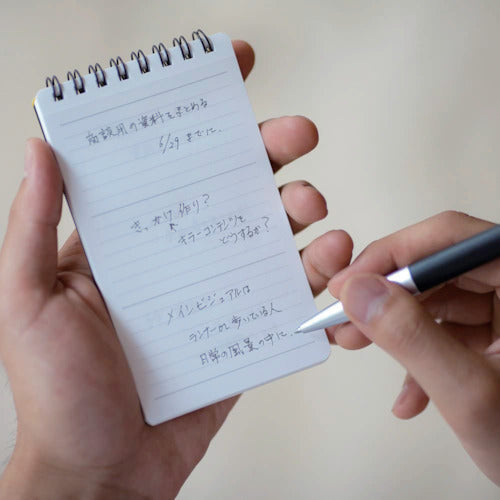 商談用の資料をまとめる
6/29 までに.
きっかけ作り?
キラーコンテンツを
どうするか?
メインビジュアルは
ランナーが歩いている人
日常の風景の中に..